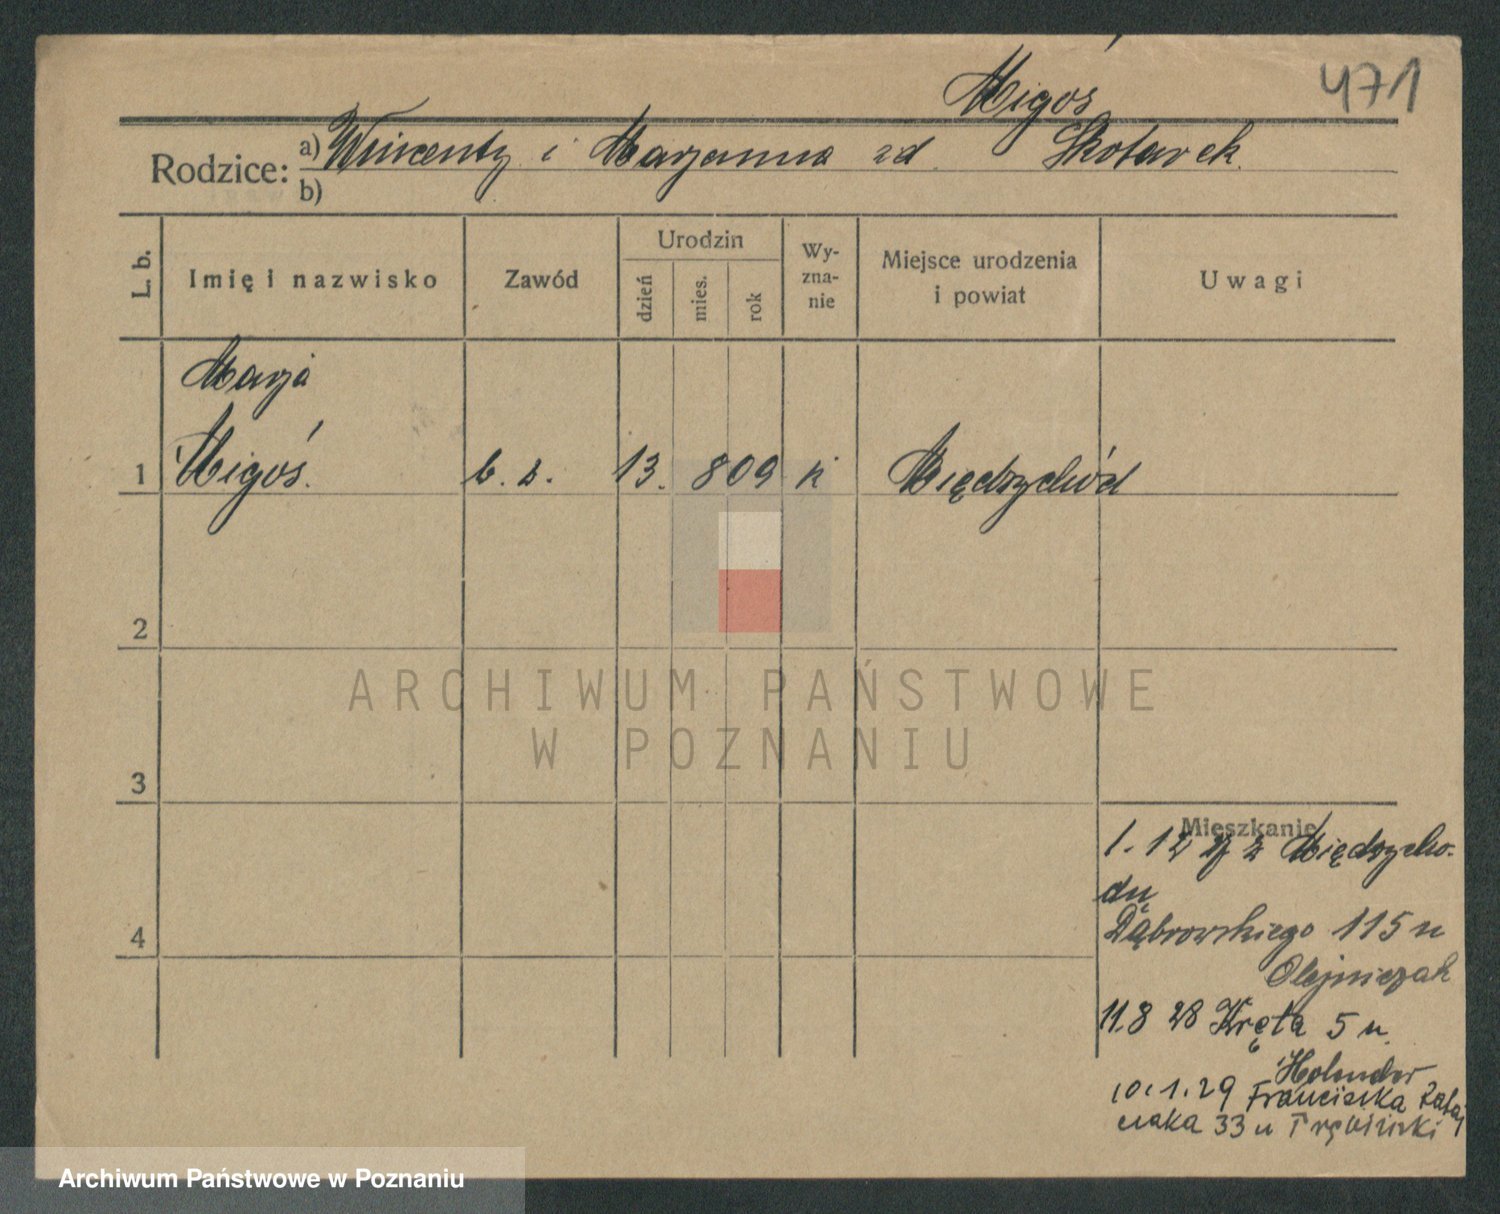 Migoś
471
Rodzice: a) Wincenty i Marjanna zd. Skotarek.
b)
L. b.
Imię i nazwisko
Zawód
Urodzin
dzień
mies.
rok
Wy-
zna-
nie
Miejsce urodzenia
i powiat
Uwagi
Marja
1 Migoś. b. z. 13. 8 09 k Międzychód
2
3
4
ARCHIWUM PAŃSTWOWE
W POZNANIU
Mieszkanie
1. 12 27 z Międzycho-
du
Dąbrowskiego 115 u
Olejniczak
11.8 28 Kręta 5 u.
Holender
10.1.29 Franciszka Rataj
czaka 33 u
Archiwum Państwowe w Poznaniu